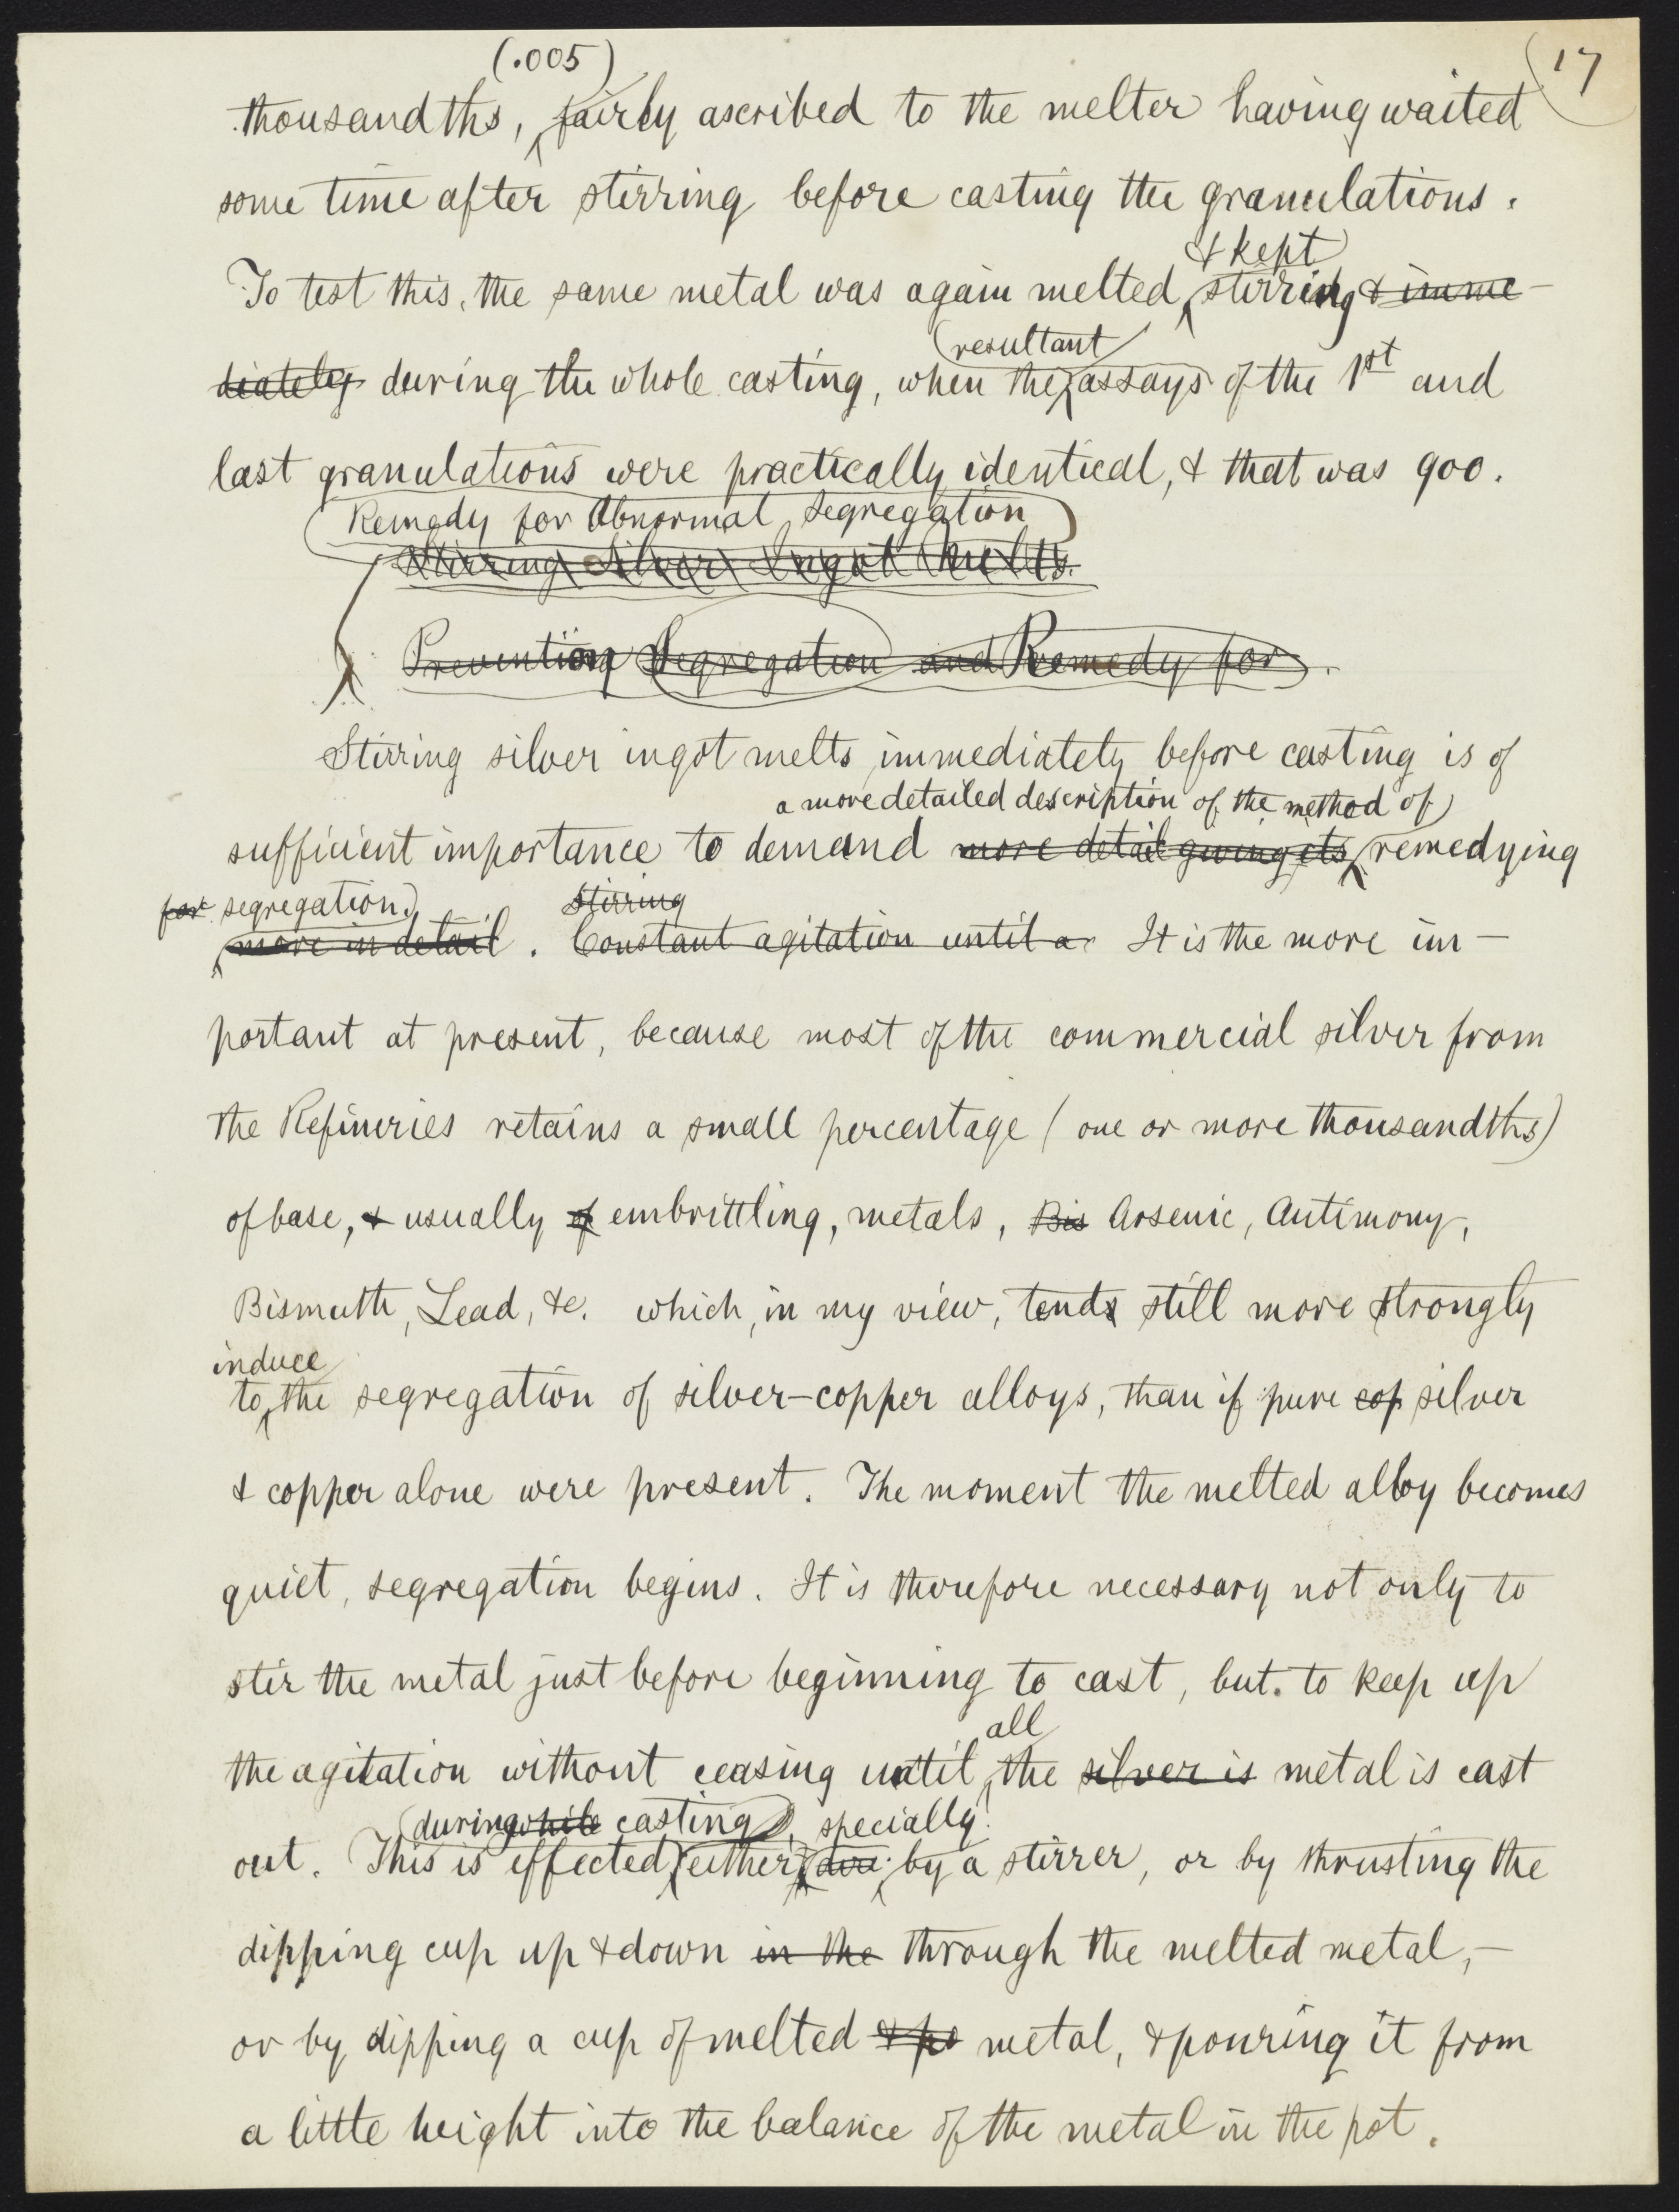 (17
(.005)
thousandths, fairly ascribed to the melter having waited
some time after stirring before casting the granulations.
& kept
To test this, the same metal was again melted, stirring & imme-
(resultant
diately during the whole casting, when the assays of the 1st and
last granulations were practically identical, & that was 900.
Remedy for Abnormal Segregation
Stirring Silver Ingot Melts.
Preventing Segregation and Remedy for.
Stirring silver ingot melts immediately before casting is of
a more detailed description of the method of
sufficient importance to demand more detail giving its remedying
for segregation. Stirring
more in detail. Constant agitation until a It is the more im-
portant at present, because most of the commercial silver from
the Refineries retains a small percentage (one or more thousandths)
of base, & usually of embrittling, metals, Bis Arsenic, Antimony,
Bismuth, Lead, &c. which, in my view, tends still more strongly
induce
to the segregation of silver-copper alloys, than if pure cop silver
& copper alone were present. The moment the melted alloy becomes
quiet, segregation begins. It is therefore necessary not only to
stir the metal just before beginning to cast, but to keep up
all
the agitation without ceasing until the silver is metal is cast
(during while casting), specially
out. This is effected either by a stirrer, or by thrusting the
dipping cup up & down in the through the melted metal,-
or by dipping a cup of melted & po metal, & pouring it from
a little height into the balance of the metal in the pot.